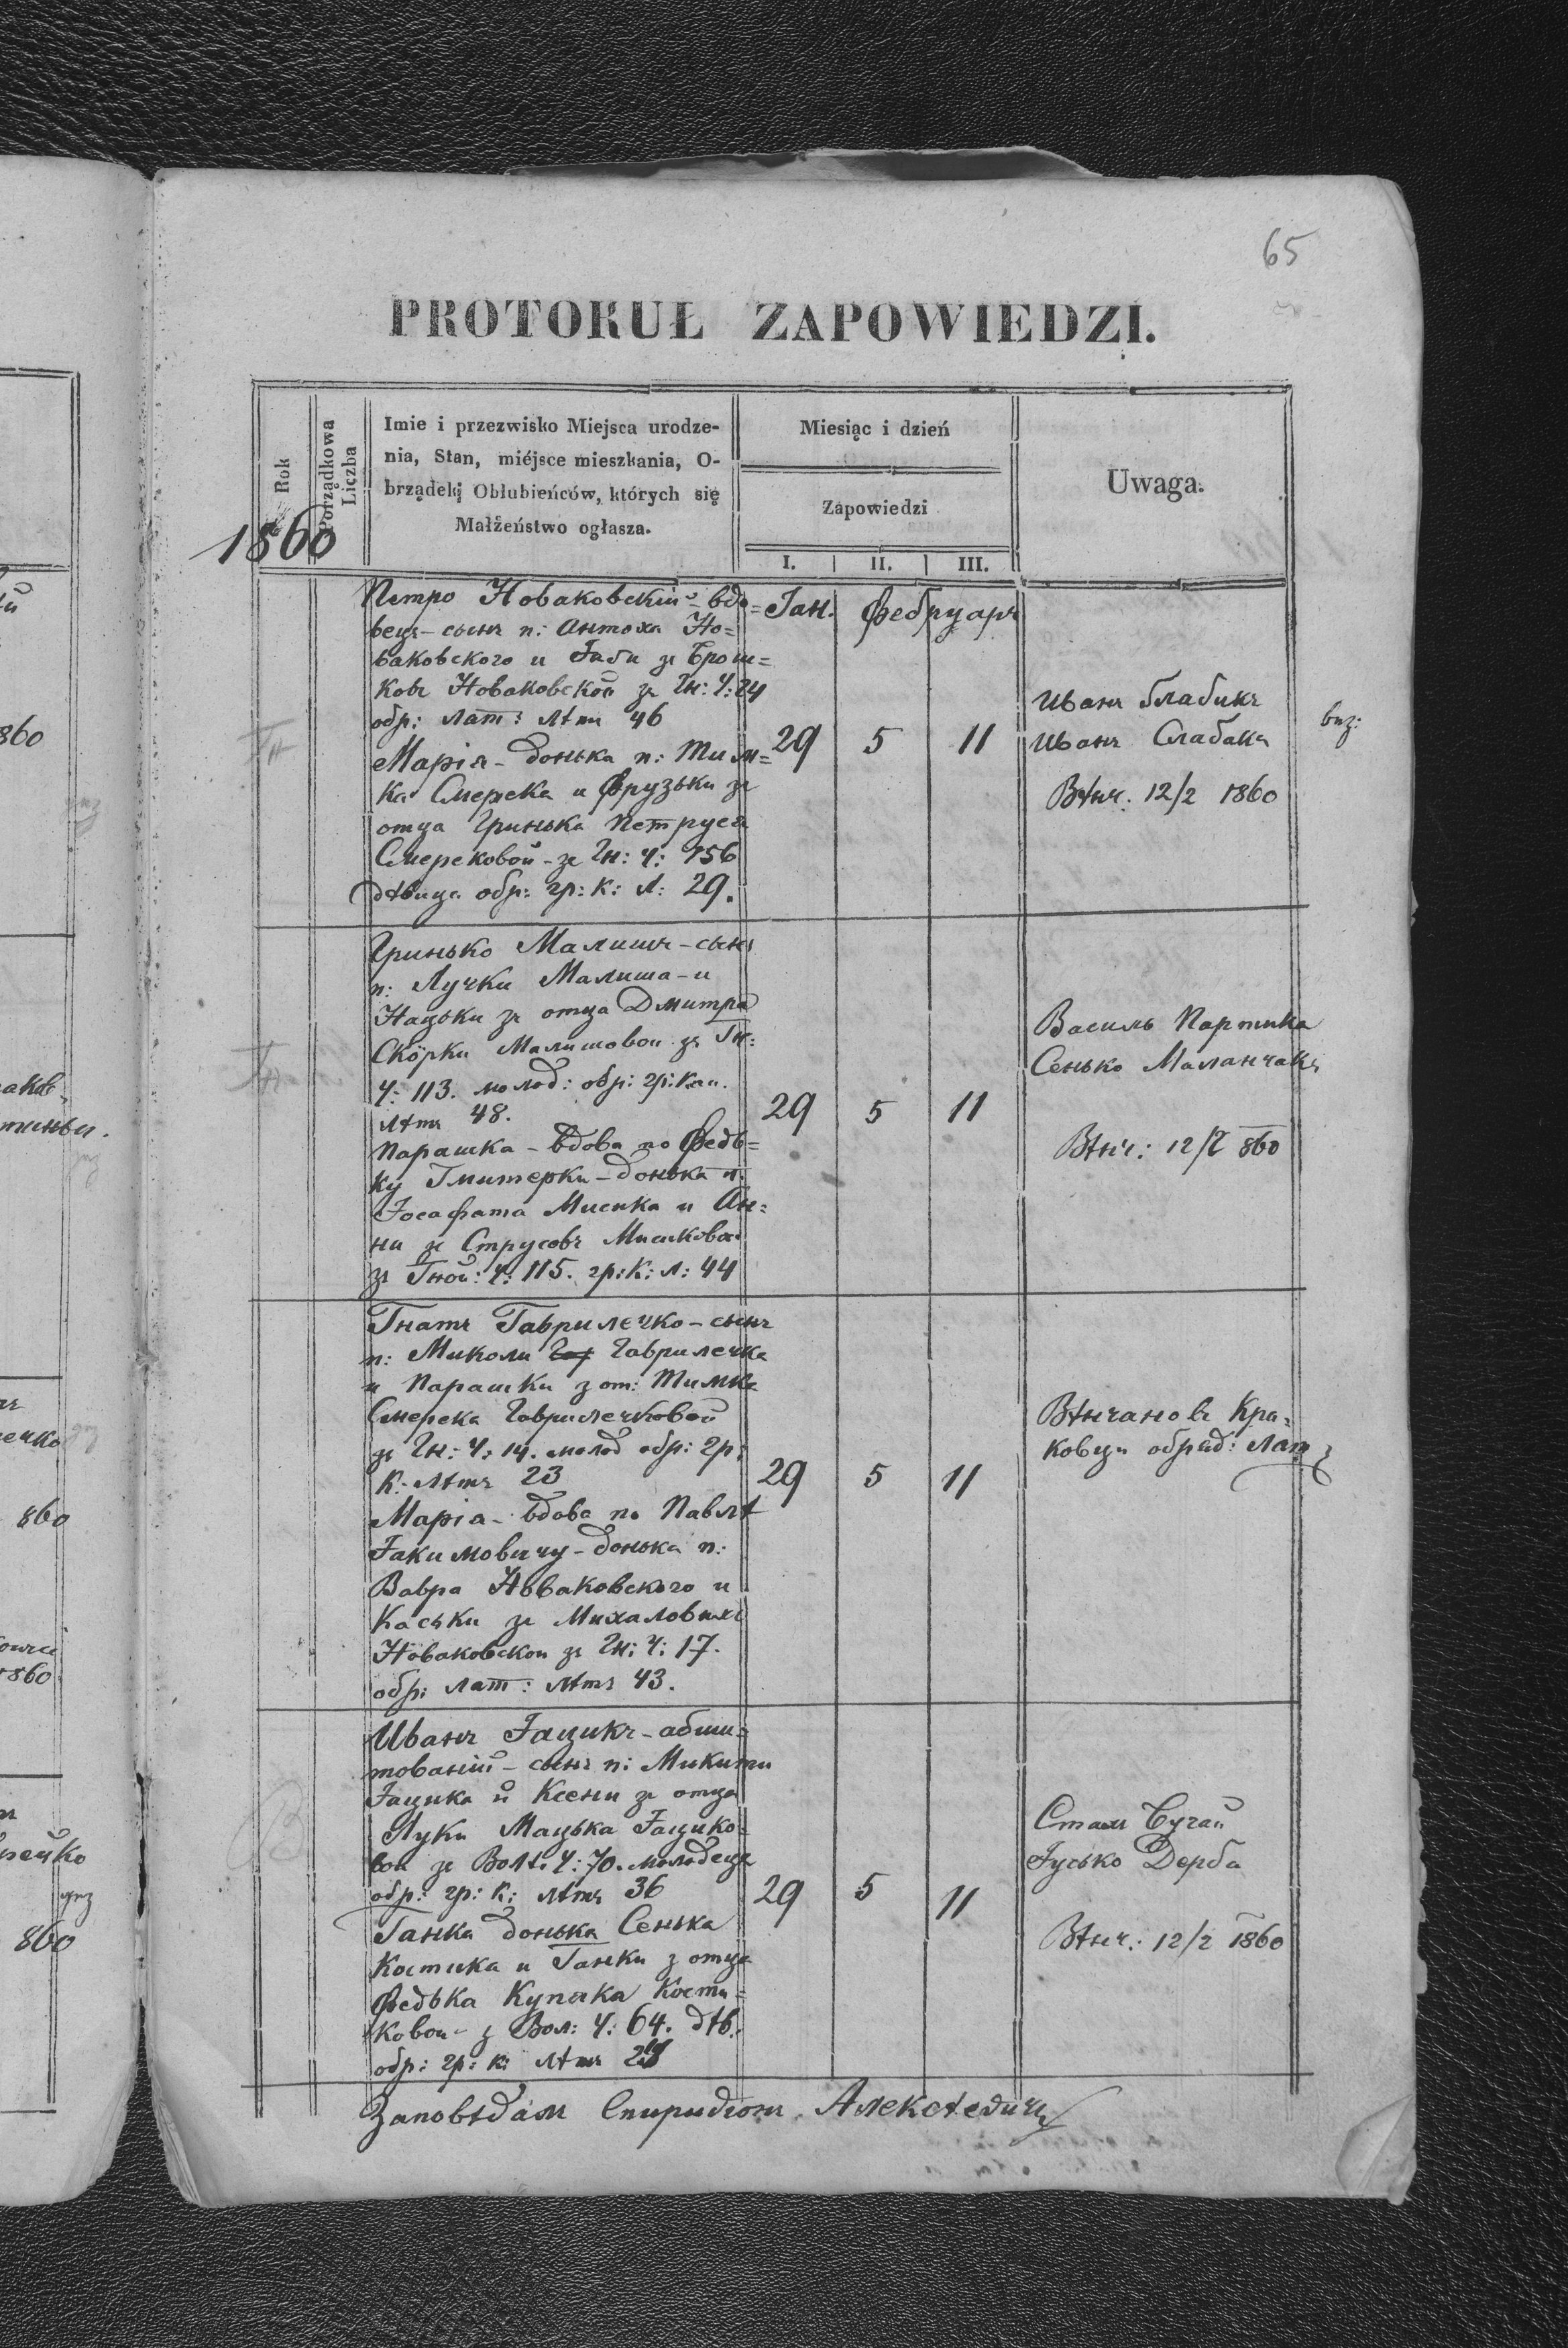 65
PROTOKUŁ ZAPOWIEDZI.
Rok
Porządkowa
Liczba
Imie i przezwisko Miejsca urodze-
nia, Stan, miéjsce mieszkania, O-
brządek Obłubieńców, których się
Małżeństwo ogłasza.
Miesiąc i dzień
Zapowiedzi
I. II. III.
Uwaga.
1860
Петро Новаковскій - вдо=
вецъ - сынъ п: Антоха Но=
ваковского и Габи зъ Брош=
ковъ Новаковскои зъ Гн: Ч: 24
обр: лат: лѣтъ 46
Марія - донька п: Тим=
ка Смерека и Фрузьки зъ
отца Гринька Петруса
Смерековой - зъ Гн: ч: 156
дѣвица обр: гр: к: л: 29.
Ган. Февруаръ
29 5 11
Иванъ
Иванъ Слабакъ
Вѣнч: 12/2 1860
Гн
Гринько Малишъ - сынъ
п: Лучки Малиша - и
Нацьки зъ отца Дмитра
Скӧрки Малишовои зъ Гн:
Ч: 113. молод: обр: гр: кат.
лѣтъ 48.
Парашка - вдова по Федь=
ку Гмитерки - донька п:
Іосафата Мисика и Ан=
ни зъ Струсовъ Мисиковои
зъ Гнои: Ч: 115. гр: К: л: 44
29 5 11
Василь Партика
Сенько Маланчакъ
Вѣнч: 12/2 860
Гн
Гнатъ Гаврилечко - сынъ
п: Миколи Гаврилечка
и Парашки з от: Тимка
Смерека Гаврилечковой
зъ Гн: Ч: 14. молод обр: гр:
к: лѣтъ 23
Марія - вдова по Павлѣ
Гакимовичу - донька п:
Вавра Новаковского и
Каськи зъ Михаловихъ
Новаковскои зъ Гн: Ч: 17.
обр: лат: лѣтъ 43.
29 5 11
Вѣнчанови Кра=
ковци обряд: Лат:
Иванъ Гацикъ - абши=
тованій - сынъ п: Микити
Гацика и Ксени зъ отца
Луки Мацька Гацико=
вои зъ Волѣ Ч: 70. молодецъ
обр: гр: к: лѣтъ 36
Ганка донька Сенька
Костика и Ганки з отца
Федька Купяка Кости=
ковои - з Вол: Ч: 64. дѣв:
обр: гр: к: лѣтъ
29 5 11
Стах Бучай
Гусько Дерба
Вѣнч: 12/2 1860
В
Заповѣдам Спиридіонъ Алексѣевичъ